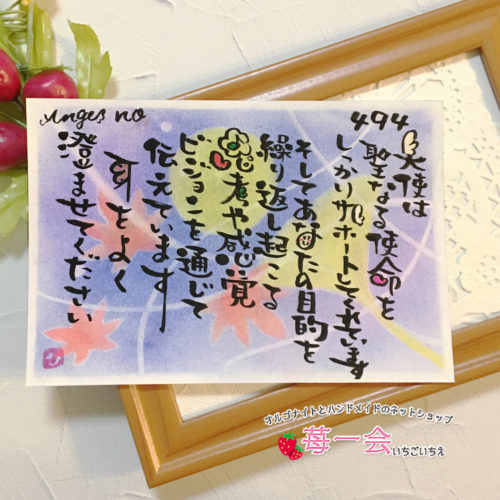 Anges no
494
天使は
聖なる使命を
しっかりサポートしてくれています
そしてあなたの目的を
繰り返し起こる
思考や感覚
ビジョンを通じて
伝えています
耳をよく
澄ませてください
オルゴナイトとハンドメイドのネットショップ
苺一会いちごいちえ